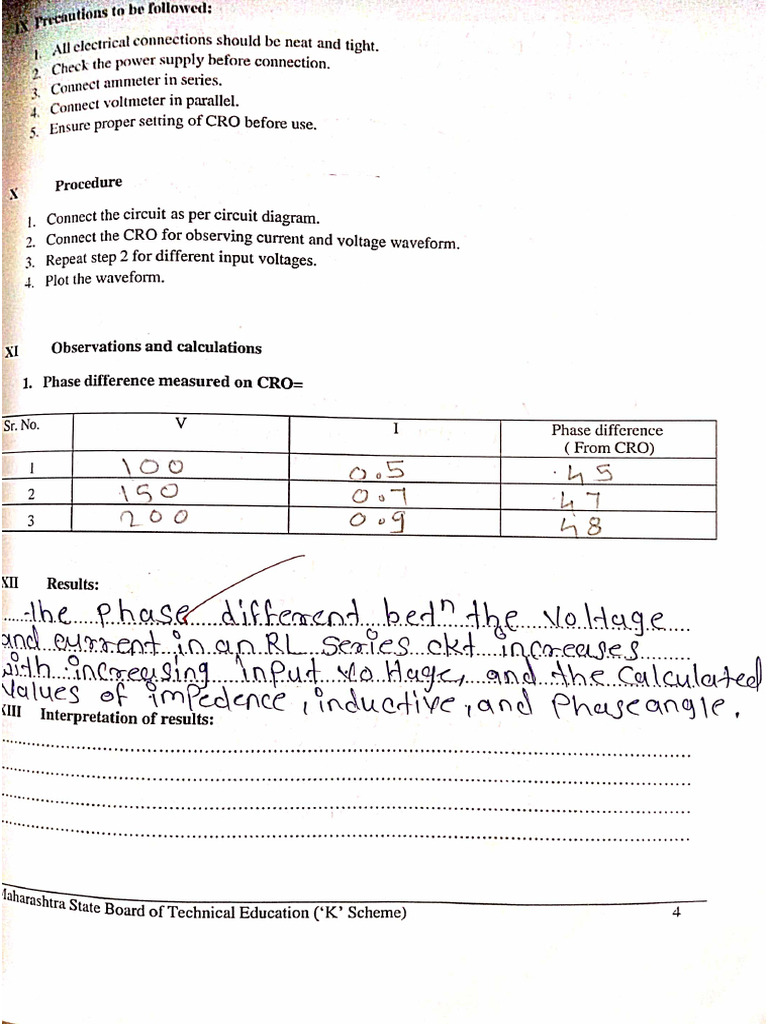 IX Precautions to be followed:
1. All electrical connections should be neat and tight.
2. Check the power supply before connection.
3. Connect ammeter in series.
4. Connect voltmeter in parallel.
5. Ensure proper setting of CRO before use.
X Procedure
1. Connect the circuit as per circuit diagram.
2. Connect the CRO for observing current and voltage waveform.
3. Repeat step 2 for different input voltages.
4. Plot the waveform.
XI Observations and calculations
1. Phase difference measured on CRO=
Sr. No. V I Phase difference
( From CRO)
1 100 0.5 45
2 150 0.7 47
3 200 0.9 48
XII Results:
the phase different betn the voltage
and current in an RL series ckt increases
with increasing input voltage, and the calculated
values of impedence, inductive, and phase angle.
XIII Interpretation of results:
Maharashtra State Board of Technical Education ('K' Scheme) 4